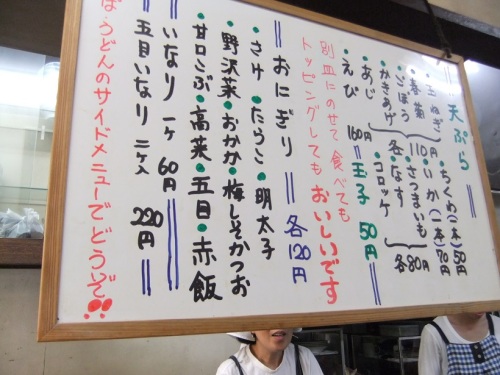 天ぷら
ちくわ(一本)50円
いか(一本)70円
さつまいも
なす
コロッケ
各80円
玉ねぎ
春菊
ごぼう
かきあげ
各110円
あじ
えび
160円
玉子 50円
別皿にのせて食べても
トッピングしてもおいしいです
おにぎり 各120円
さけ・たらこ・明太子
野沢菜・おかか・梅しそかつお
甘口こぶ・高菜・五目・赤飯
いなり 一ヶ 60円
五目いなり 二ヶ入 220円
ば・うどんのサイドメニューでどうぞ!!